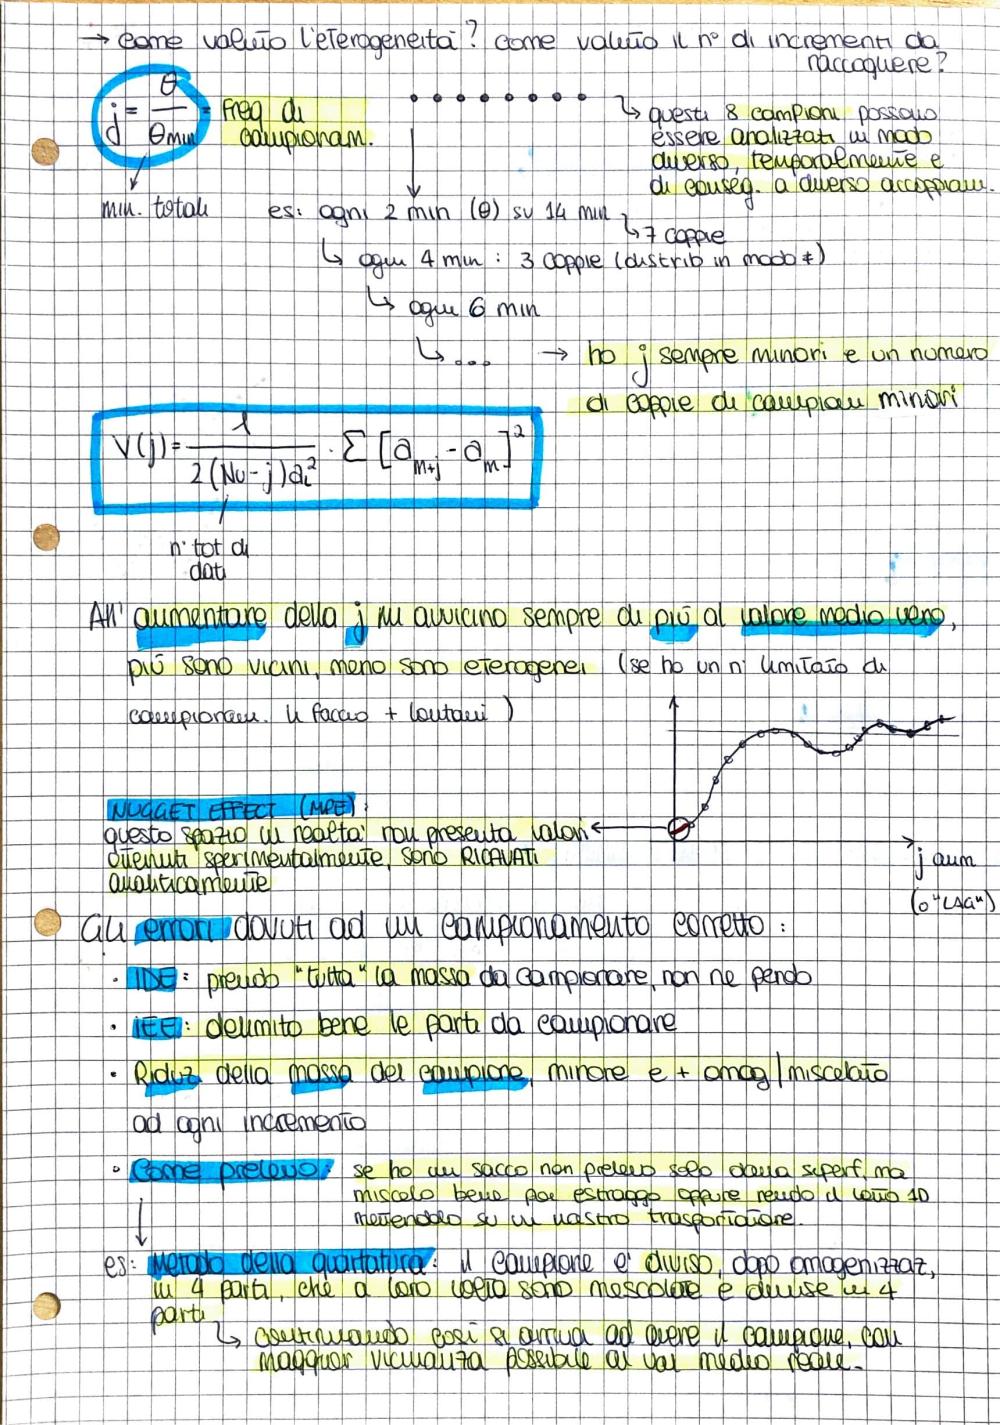 → Come valuto l'eterogeneità? Come valuto il n° di incrementi da
raccogliere?
j = θ / θmin = Freq di
campionam.
↳ questi 8 campioni possono
essere analizzati in modo
diverso, temporalmente e
di conseg. a diverso accoppiam.
min. totali
es: ogni 2 min (θ) su 14 min
↳ 7 coppie
↳ ogni 4 min : 3 coppie (distrib in modo ≠)
↳ ogni 6 min
↳ ... → ho j sempre minori e un numero
di coppie di campioni minori
V(j) = 1 / 2(Nu-j)ai² · Σ [am+j - am]²
n° tot di
dati
All' aumentare della j mi avvicino sempre di più al valore medio vero,
più sono vicini, meno sono eterogenei (se ho un n° limitato di
campionam. li faccio + lontani)
NUGGET EFFECT (MPE):
questo spazio in realtà non presenta valori
ottenuti sperimentalmente, sono RICAVATI
analiticamente
j aum
(o "LAG")
Gli errori dovuti ad un campionamento corretto :
• IDE: prendo "tutta" la massa da campionare, non ne perdo
• IEE: delimito bene le parti da campionare
• Riduz della massa del campione, minore e + omog/miscelato
ad ogni incremento
• Come prelevo: se ho un sacco non prelevo solo dalla superf, ma
miscelo bene poi estraggo oppure rendo il lotto 1D
mettendolo su un nastro trasportatore.
es: Metodo della quartatura: il campione è diviso, dopo omogenizzaz,
in 4 parti, che a loro volta sono mescolate e divise in 4
parti
↳ continuando così si arriva ad avere il campione, con
maggior vicinanza possibile al val medio reale.